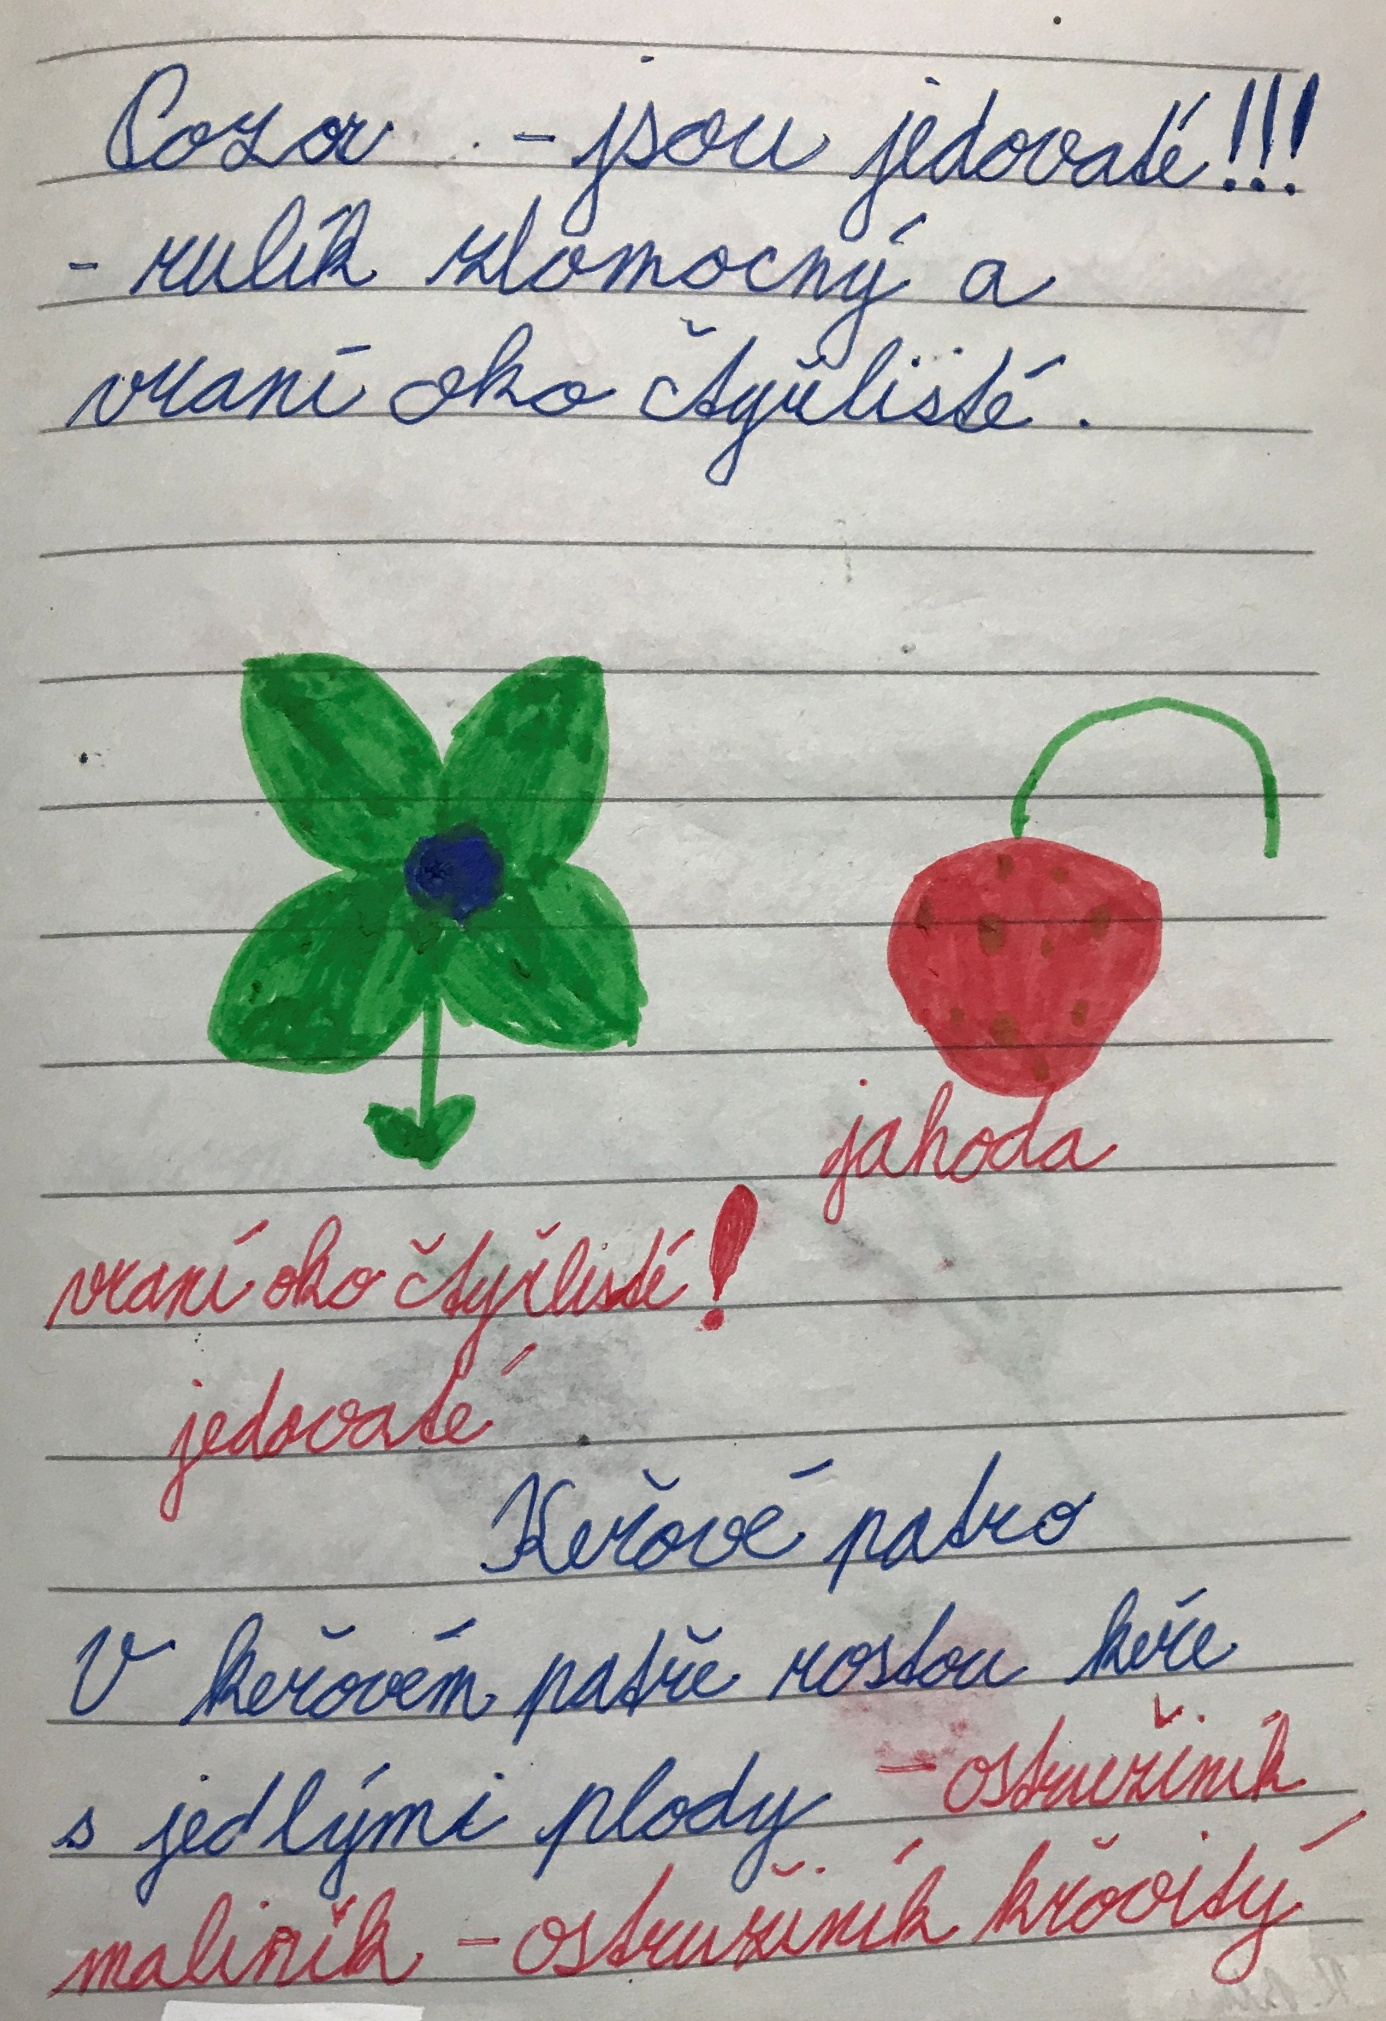 Pozor - jsou jedovaté!!!
- rulík zlomocný a
vraní oko čtyřlisté.
jahoda
vraní oko čtyřlisté!
jedovaté
Keřové patro
V keřovém patře rostou keře
s jedlými plody - ostružiník
maliník - ostružiník křovitý